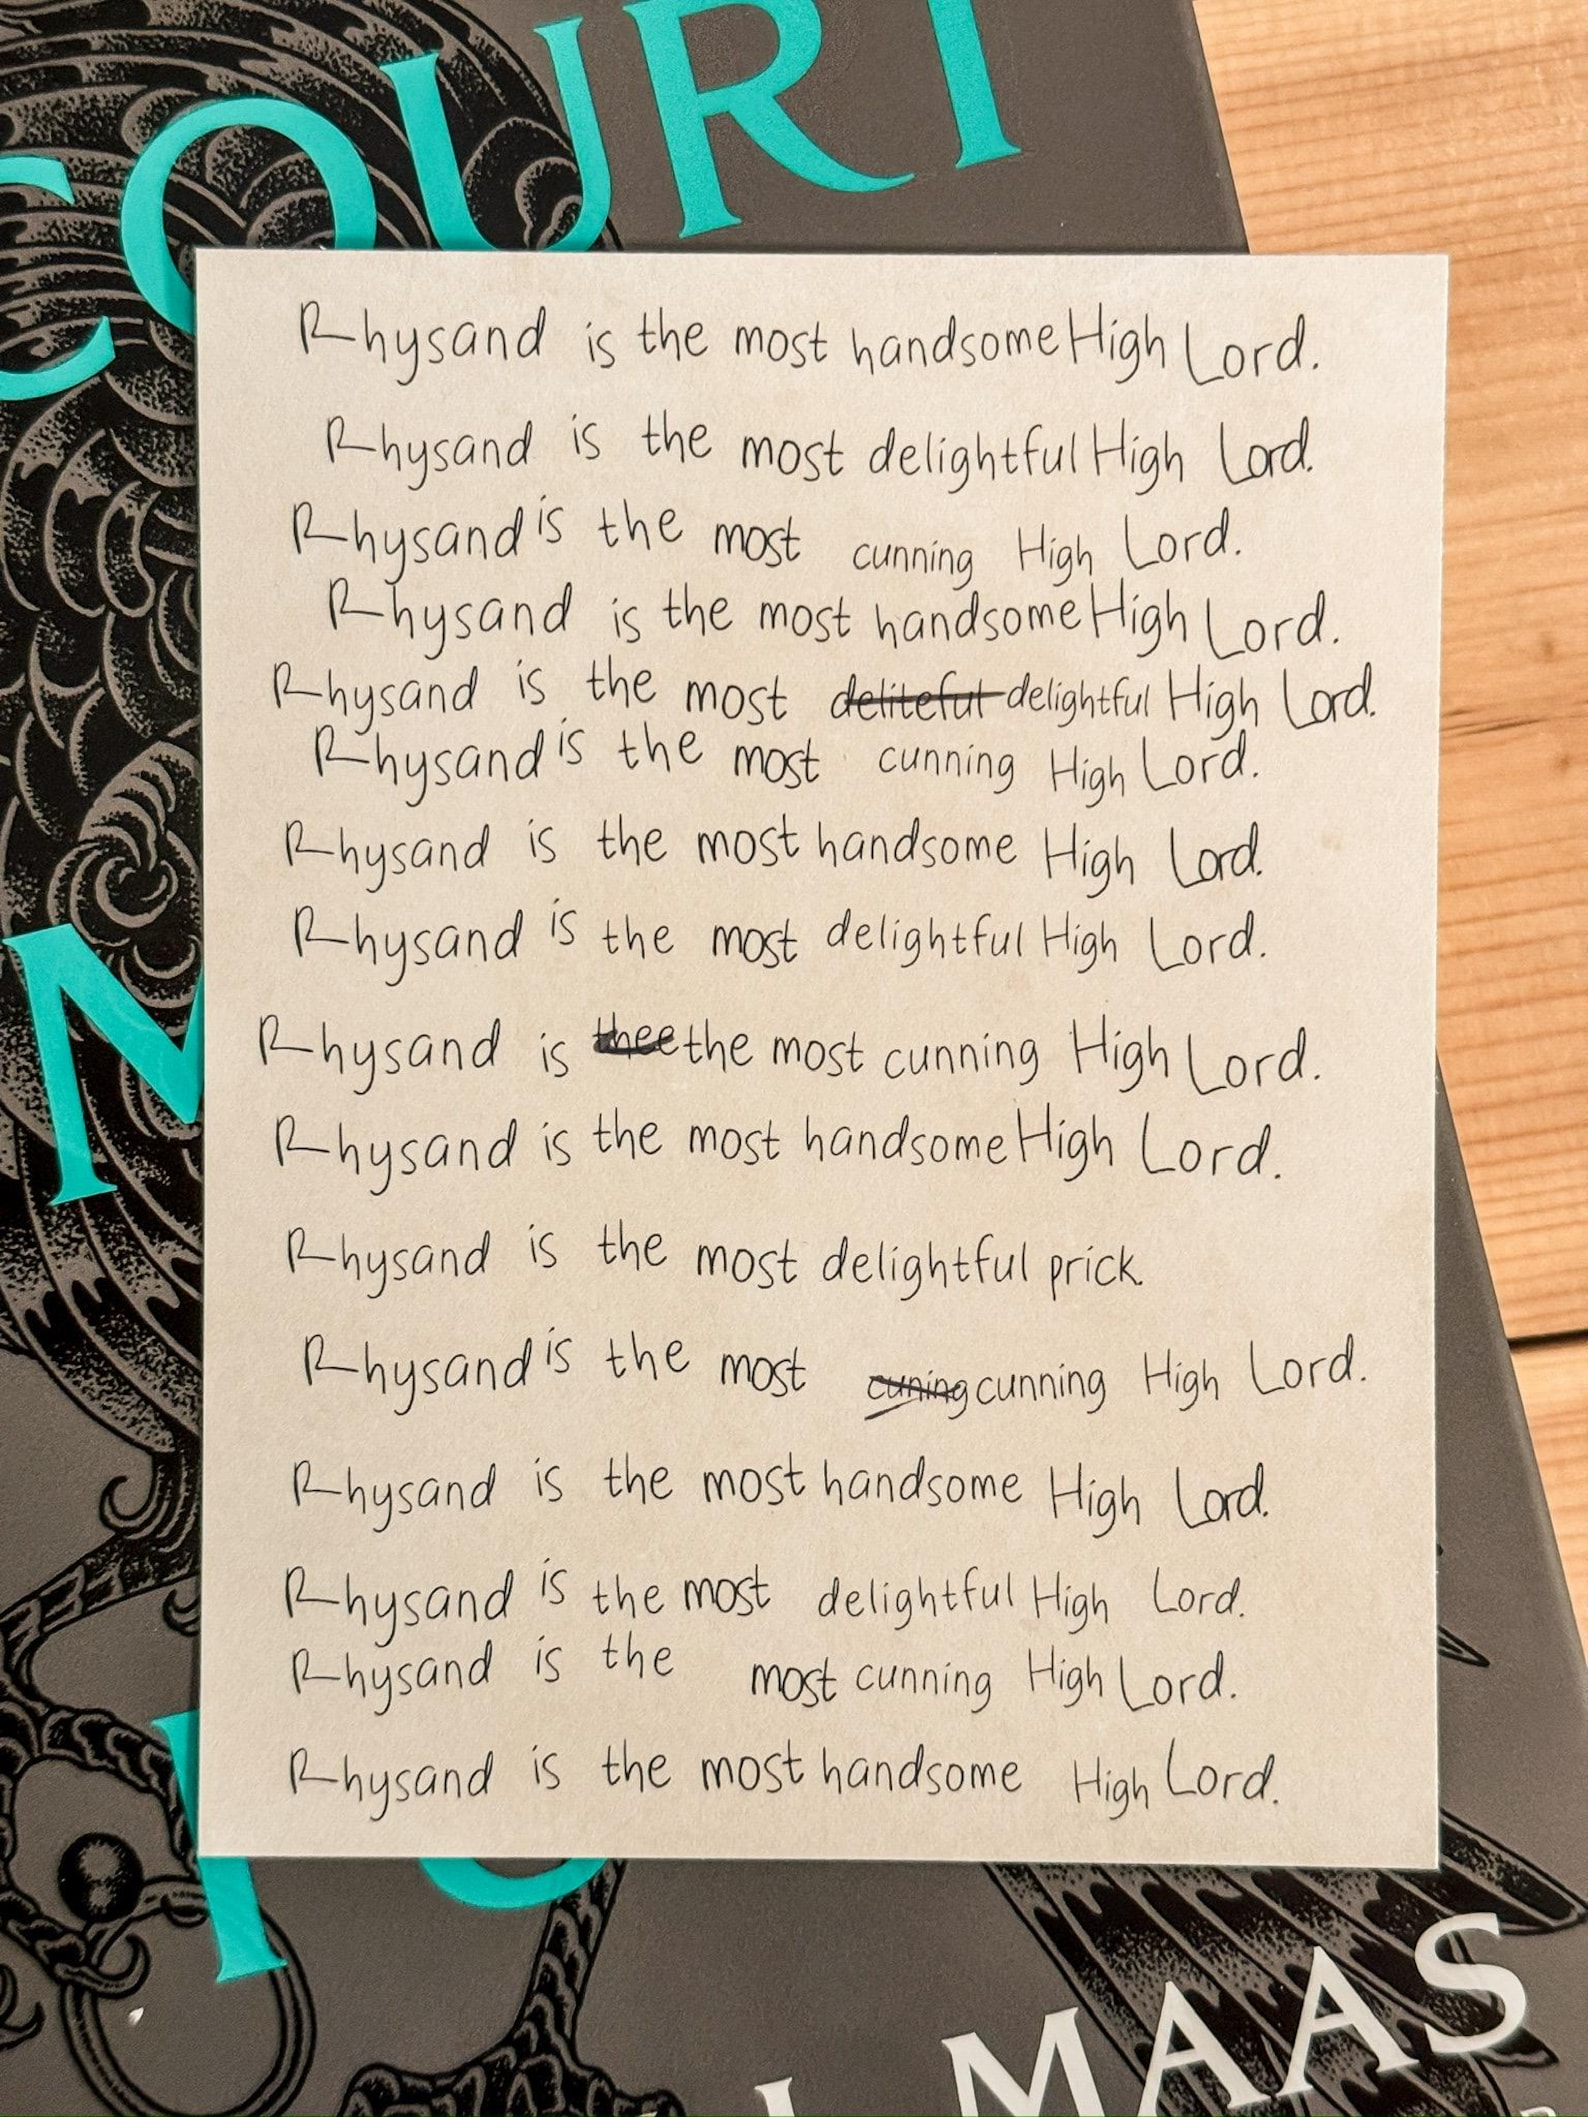 COURT
Rhysand is the most handsome High Lord.
Rhysand is the most delightful High Lord.
Rhysand is the most cunning High Lord.
Rhysand is the most handsome High Lord.
Rhysand is the most deliteful delightful High Lord.
Rhysand is the most cunning High Lord.
Rhysand is the most handsome High Lord.
Rhysand is the most delightful High Lord.
Rhysand is thee the most cunning High Lord.
Rhysand is the most handsome High Lord.
Rhysand is the most delightful prick.
Rhysand is the most cuning cunning High Lord.
Rhysand is the most handsome High Lord.
Rhysand is the most delightful High Lord.
Rhysand is the most cunning High Lord.
Rhysand is the most handsome High Lord.
J. MAAS